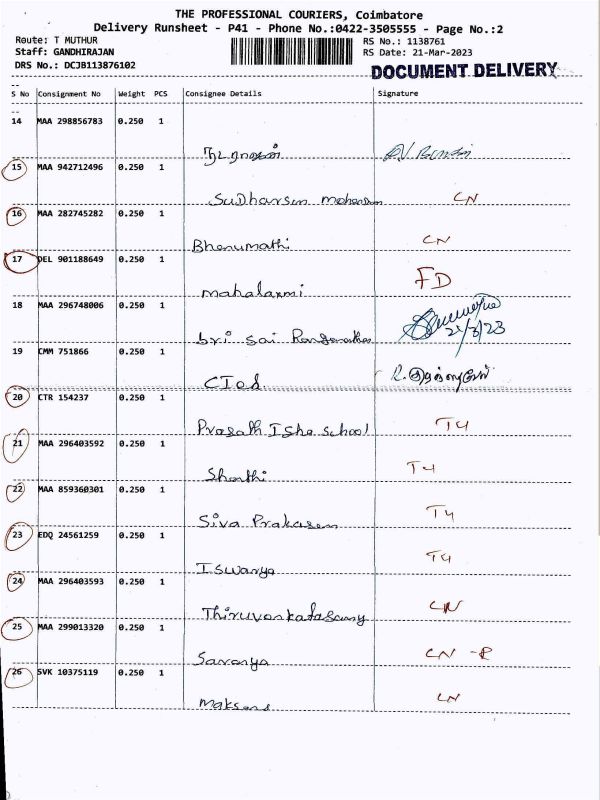 THE PROFESSIONAL COURIERS, Coimbatore
Delivery Runsheet - P41 - Phone No.:0422-3505555 - Page No.:2
Route: T MUTHUR RS No.: 1138761
Staff: GANDHIRAJAN RS Date: 21-Mar-2023
DRS No.: DCJB113876102 DOCUMENT DELIVERY
S No Consignment No Weight PCS Consignee Details Signature
14 MAA 298856783 0.250 1
நடராஜன்
15 MAA 942712496 0.250 1
Sudharsen CN
16 MAA 282745282 0.250 1
Bhanumathi CN
17 DEL 901188649 0.250 1
mahalaxmi FD
18 MAA 296748006 0.250 1
Sri Sai 21/3/23
19 CMM 751866 0.250 1
20 CTR 154237 0.250 1
Prasath Isha School T4
21 MAA 296403592 0.250 1
Shanthi T4
22 MAA 859360301 0.250 1
Siva Prakasam T4
23 EDQ 24561259 0.250 1
Iswarya T4
24 MAA 296403593 0.250 1
CN
25 MAA 299013320 0.250 1
Saranya CN -R
26 SVK 10375119 0.250 1
CN